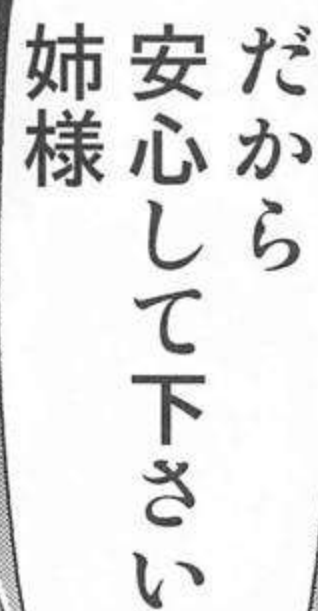 だから
安心して下さい
姉様